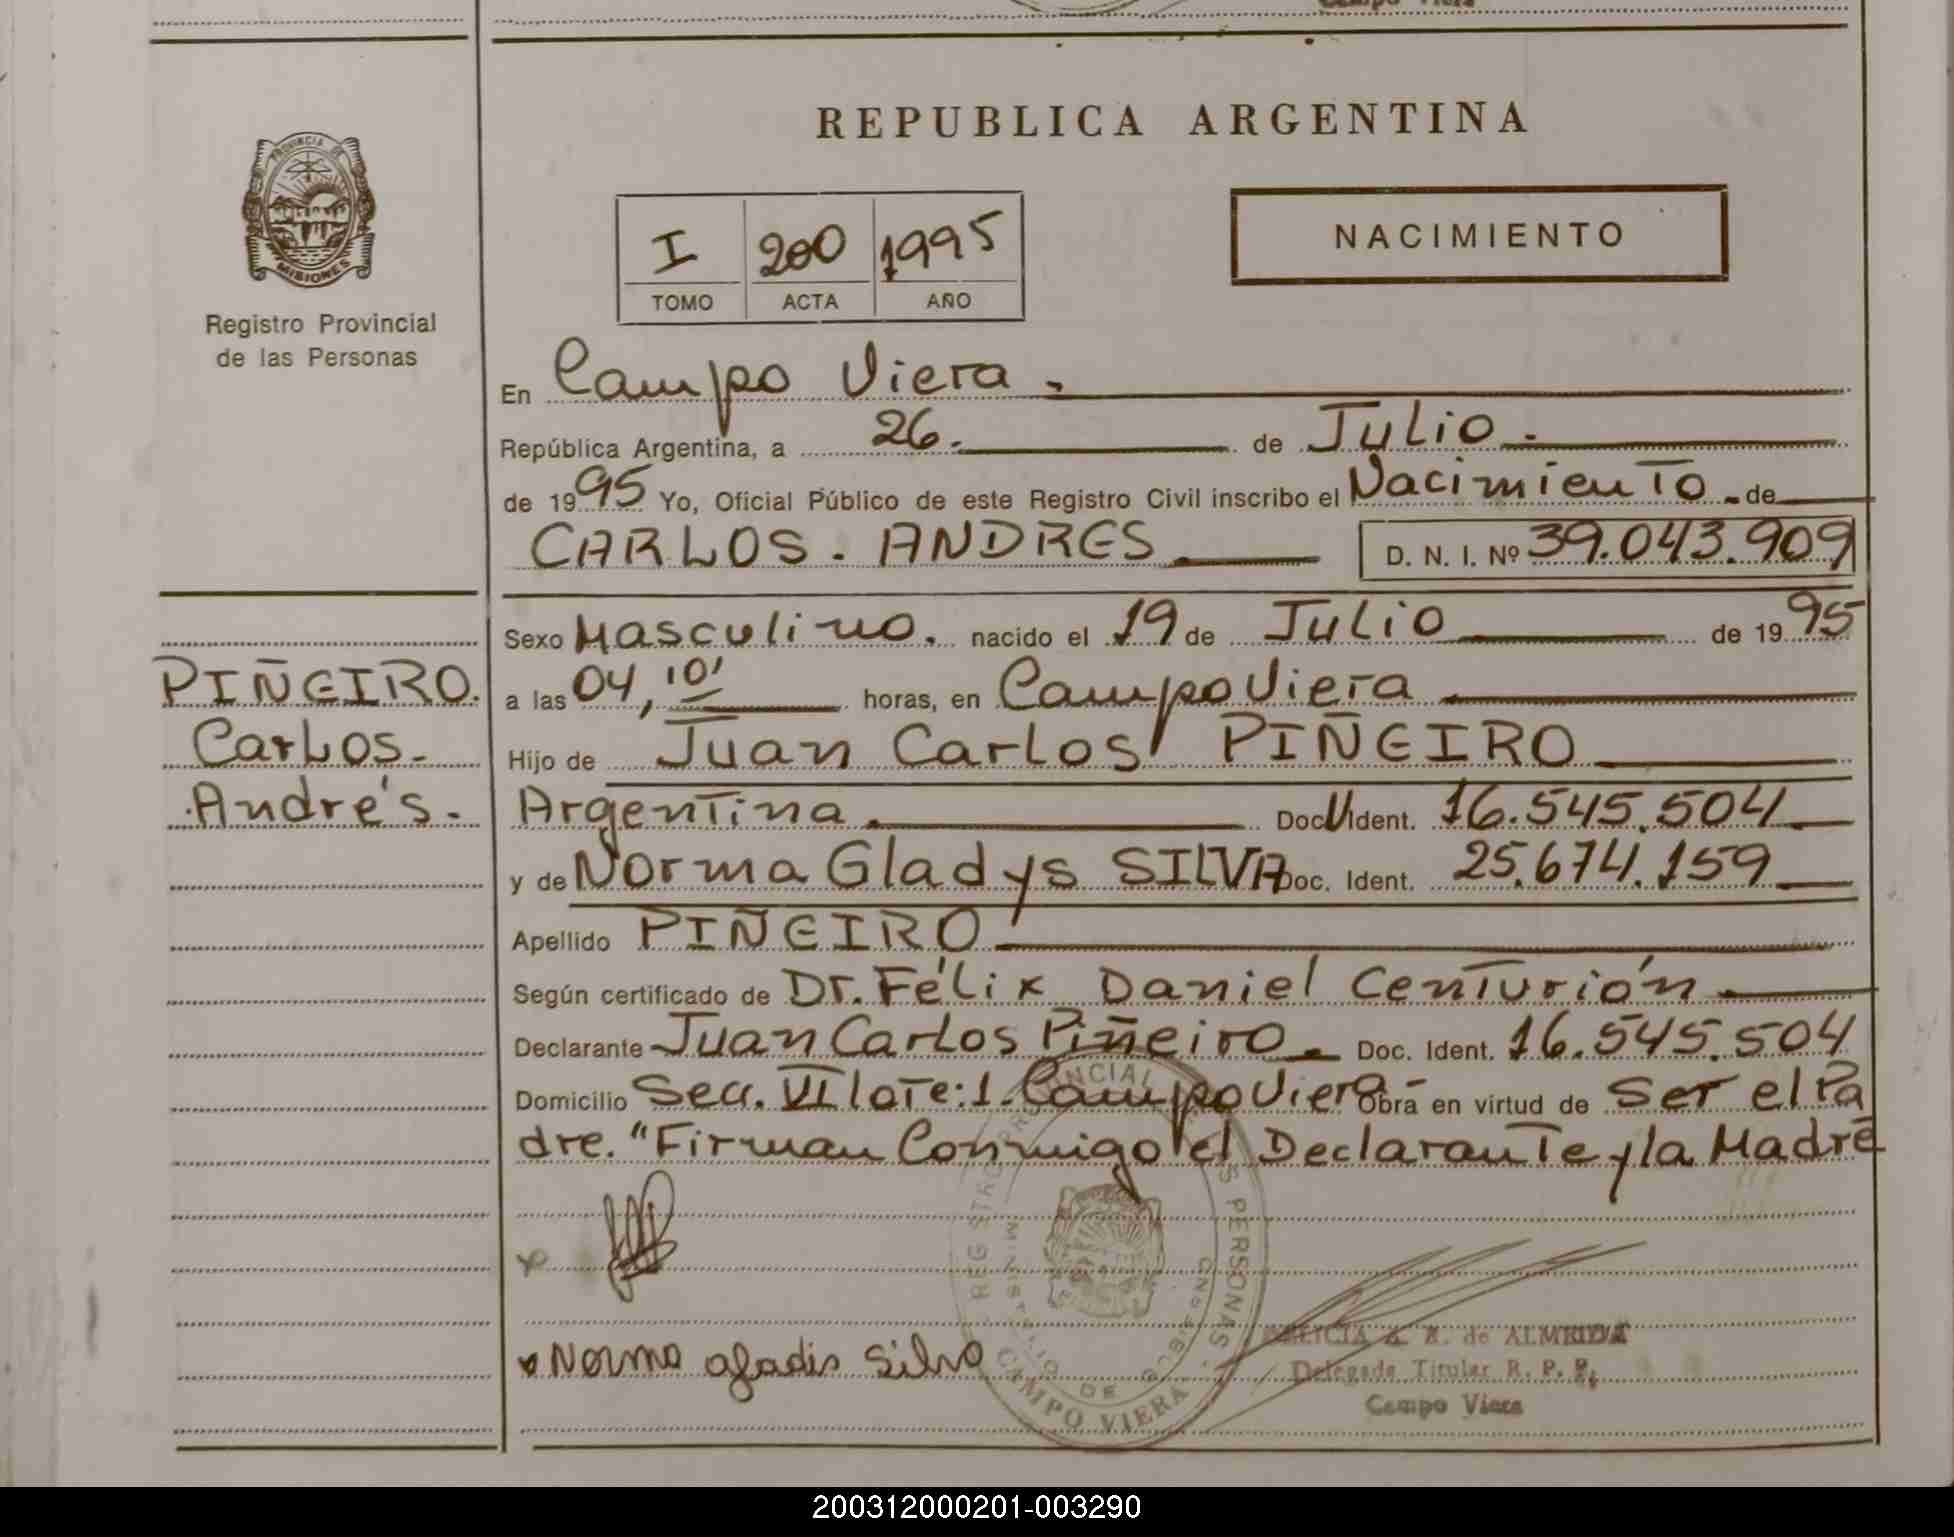 REPUBLICA ARGENTINA
PROVINCIA DE
MISIONES
Registro Provincial
de las Personas
I 200 1995
TOMO ACTA AÑO
NACIMIENTO
En Campo Viera.
República Argentina, a 26. de Julio.
de 1995 Yo, Oficial Público de este Registro Civil inscribo el Nacimiento de
CARLOS. ANDRES D. N. I. Nº 39.043.909
Sexo Masculino. nacido el 19 de Julio de 1995
PIÑEIRO.
Carlos.
Andrés.
a las 04,10' horas, en Campo Viera
Hijo de Juan Carlos PIÑEIRO
Argentina. Doc. Ident. 16.545.504
y de Norma Gladys SILVA Doc. Ident. 25.674.159
Apellido PIÑEIRO
Según certificado de Dr. Félix Daniel Centurión
Declarante Juan Carlos Piñeiro. Doc. Ident. 16.545.504
Domicilio Secc. VI lote: 1. Campo Viera- Obra en virtud de Ser el Pa
dre. "Firman Conmigo el Declarante y la Madre
REGISTRO PROVINCIAL PERSONAS
MINISTERIO DE
CAMPO VIERA
Norma gladis Silva
de ALMEIDA
Delegada Titular R. P. P.
Campo Viera
200312000201-003290